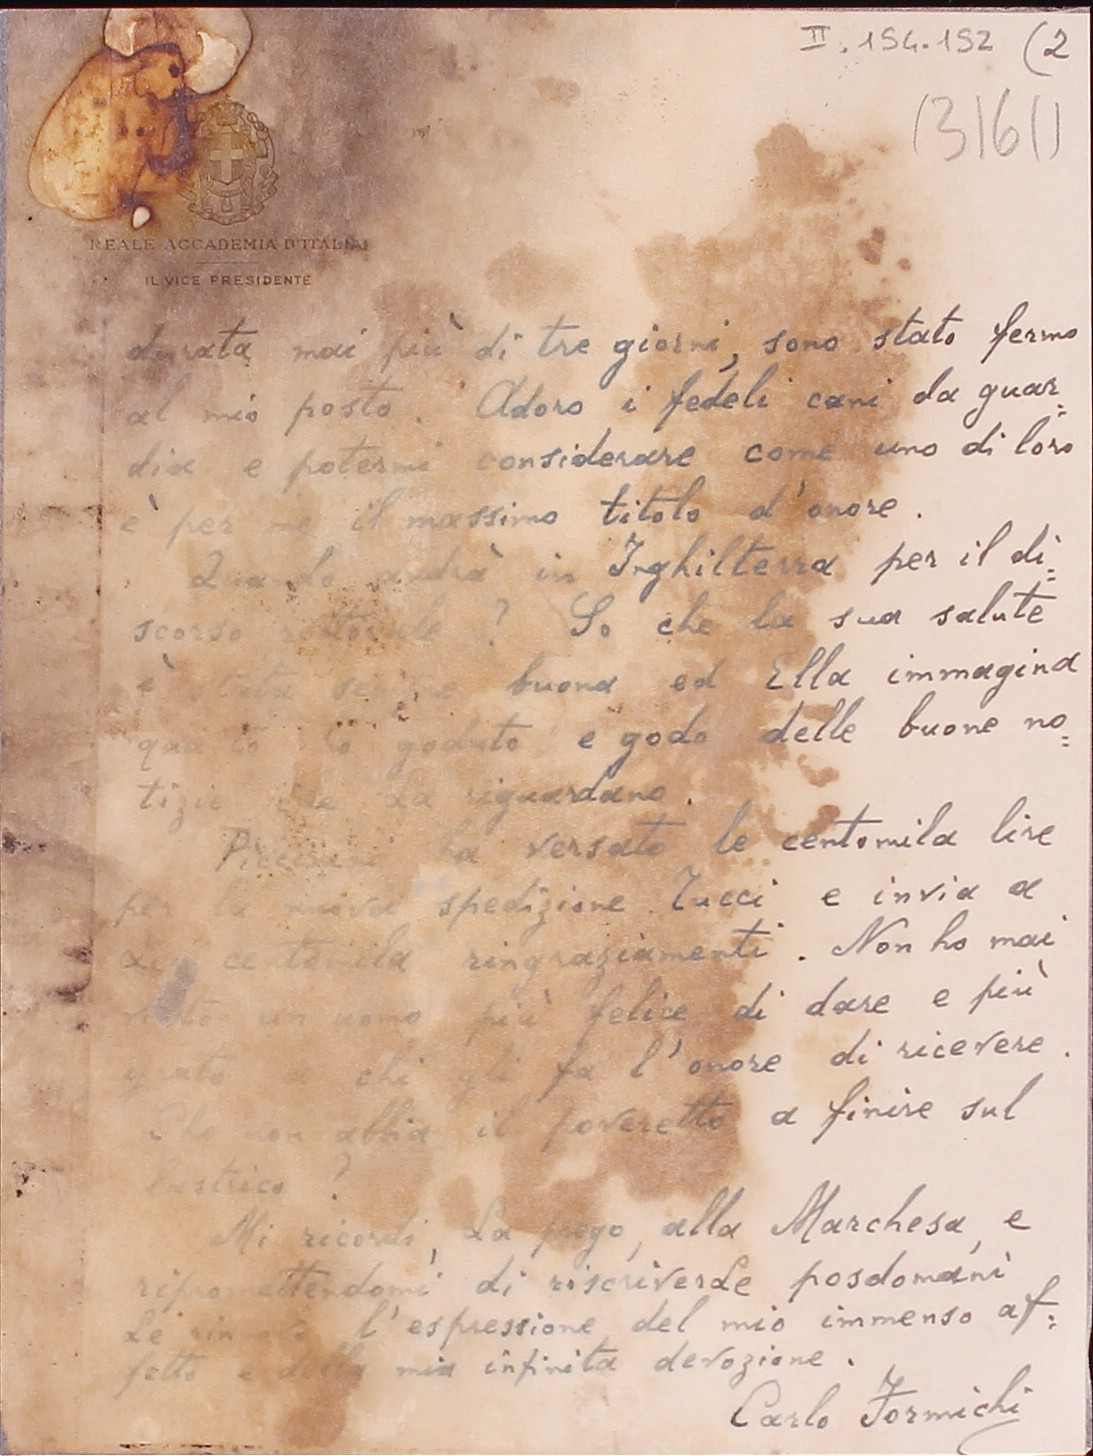 II. 154-152 (2
(3161)
REALE ACCADEMIA D'ITALIA
IL VICE PRESIDENTE
durata mai più di tre giorni, sono stato fermo
al mio posto. Adoro i fedeli cani da guar=
dia e potermi considerare come uno di loro
è per me il massimo titolo d'onore.
Quando andrà in Inghilterra per il di=
scorso rettorale? So che la sua salute
è stata sempre buona ed Ella immagina
quanto ho goduto e godo delle buone no=
tizie che La riguardano.
ha versato le centomila lire
per la nuova spedizione Tucci e invia a
Lei centomila ringraziamenti. Non ho mai
visto un uomo più felice di dare e più
grato a chi gli fa l'onore di ricevere.
Che non abbia il poveretto a finire sul
lastrico?
Mi ricordi, La prego, alla Marchesa, e
ripromettendomi di riscriverLe posdomani
Le rinnovo l'espressione del mio immenso af=
fetto e della mia infinita devozione.
Carlo Formichi